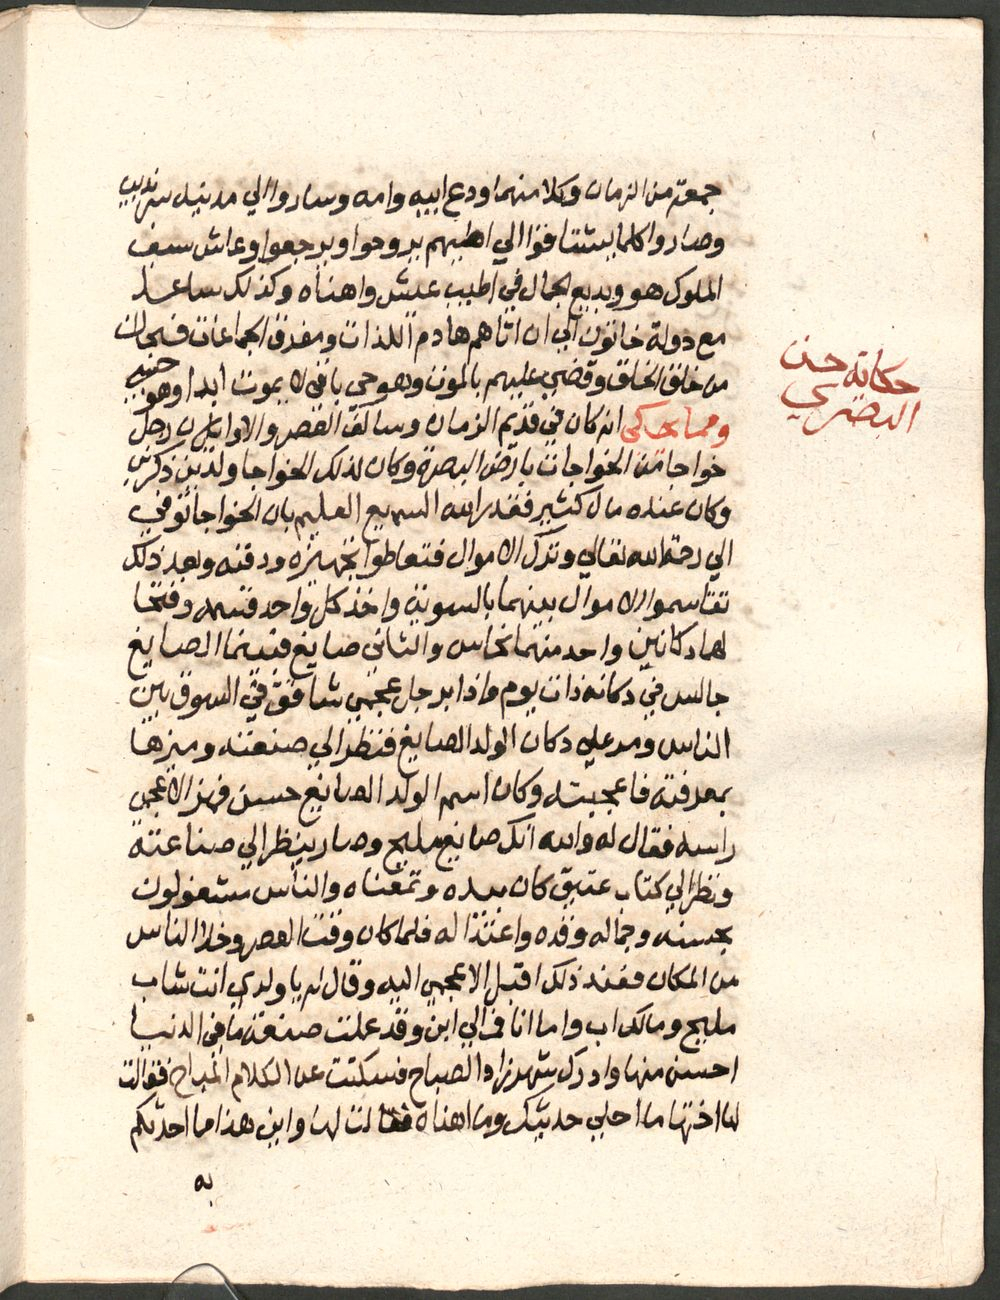 جمعة من الزمان وكلا منهما ودع ابيه وامه وساروا الي مدينة سرنديب
وصاروا كلما يشتاقوا الي اهليهم يروحوا ويرجعوا وعاش سيف
الملوك هو وبديع الجمال في اطيب عيش واهناه وكذلك ساعد
مع دولة خاتون الي ان اتاهم هادم اللذات ومفرق الجماعات فسبحان
من خلق الخلق وقضي عليهم بالموت وهو حي باقي لا يموت ابدا وهو حسبي
ومما يحكى انه كان في قديم الزمان وسالف العصر والاوان رجل
خواجا من الخواجات بارض البصرة وكان لذلك الخواجا ولدين ذكرين
وكان عنده مال كثير فقدر الله السميع العليم بان الخواجا توفي
الي رحمة الله تعالي وترك الاموال فتعاطوا تجهيزه ودفنه وبعد ذلك
تقاسموا الاموال بينهما بالسوية واخذ كل واحد قسمه وفتحا
لهما دكانين واحد منهما نحاس والثاني صايغ فبينما الصايغ
جالس في دكانه ذات يوم واذا برجل عجمي شاقق في السوق بين
الناس ومر علي دكان الولد الصايغ فنظر الي صنعته وميزها
بمعرفته فاعجبته وكان اسم الولد الصايغ حسن فهز الاعجمي
راسه فقال له والله انك صايغ مليح وصار ينظر الي صناعته
ونظر الي كتاب عتيق كان بيده والناس مشغولون
بحسنه وجماله وقده واعتداله فلما كان وقت العصر وخلا الناس
من المكان فعند ذلك اقبل الاعجمي اليه وقال له يا ولدي انت شاب
مليح ومالك اب واما انا فمالي ابن وقد علمت صنعة ما في الدنيا
احسن منها وادرك شهرزاد الصباح فسكتت عن الكلام المباح فقالت
لها اختها ما احلي حديثك وما اهناه فقالت لها واين هذا مما احدثكم
به
حكاية حسن
البصري